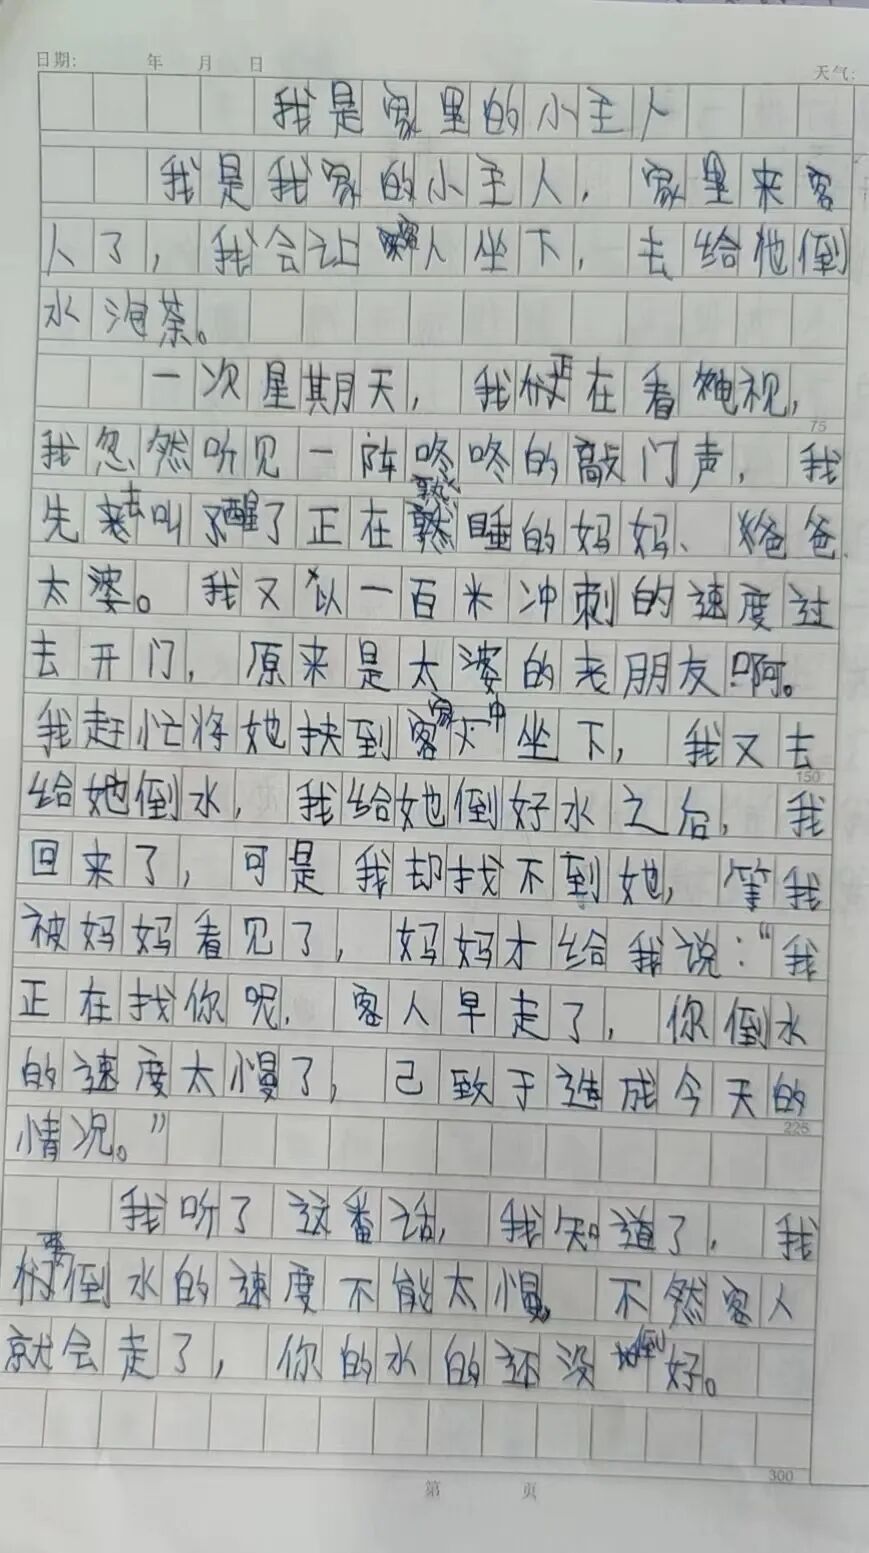 日期: 年 月 日
天气:
我是家里的小主人
我是我家的小主人，家里来客
人了，我会让客人坐下，去给他倒
水泡茶。
一次星期天，我正在看电视，
75
我忽然听见一阵咚咚的敲门声，我
先去叫醒了正在熟睡的妈妈、爸爸
太婆。我又以一百米冲刺的速度过
去开门，原来是太婆的老朋友啊。
我赶忙将她扶到客家中坐下，我又去
150
给她倒水，我给她倒好水之后，我
回来了，可是我却找不到她，等我
被妈妈看见了，妈妈才给我说：“我
正在找你呢，客人早走了，你倒水
的速度太慢了，己致于造成今天的
225
情况。”
我听了这番话，我知道了，我
要倒水的速度不能太慢，不然客人
就会走了，你的水的还没倒好。
300
第 页